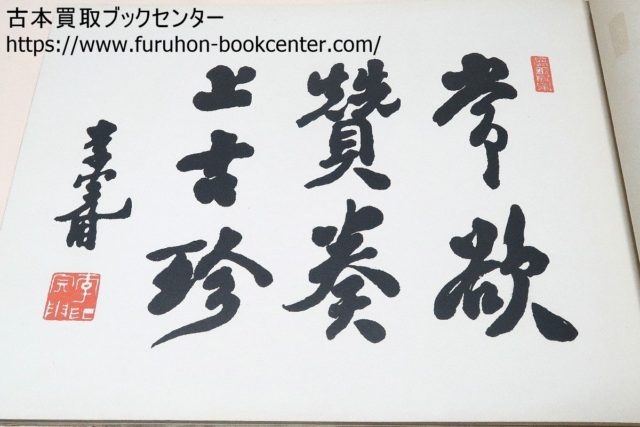 古本買取ブックセンター
https://www.furuhon-bookcenter.com/
常欲
贊奏
上古珍